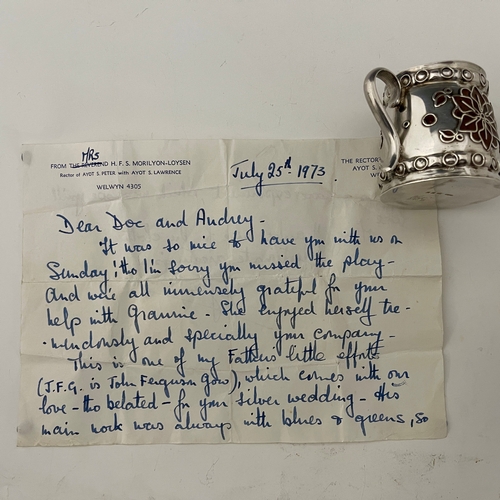 MRS
FROM THE REVEREND H. F. S. MORILYON-LOYSEN
Rector of AYOT S. PETER with AYOT S. LAWRENCE
WELWYN 4305
July 25th 1973.
THE RECTOR
AYOT S.
W
Dear Doc and Audrey-
It was so nice to have you with us on
Sunday 'tho I'm sorry you missed the play-
and we're all immensely grateful for your
help with Grannie. She enjoyed herself tre-
-mendously and specially your company-
This is one of my Father's little efforts
(J.F.G. is John Ferguson Gow), which comes with our
love - tho belated - for your silver wedding - His
main work was always with blues & greens, so